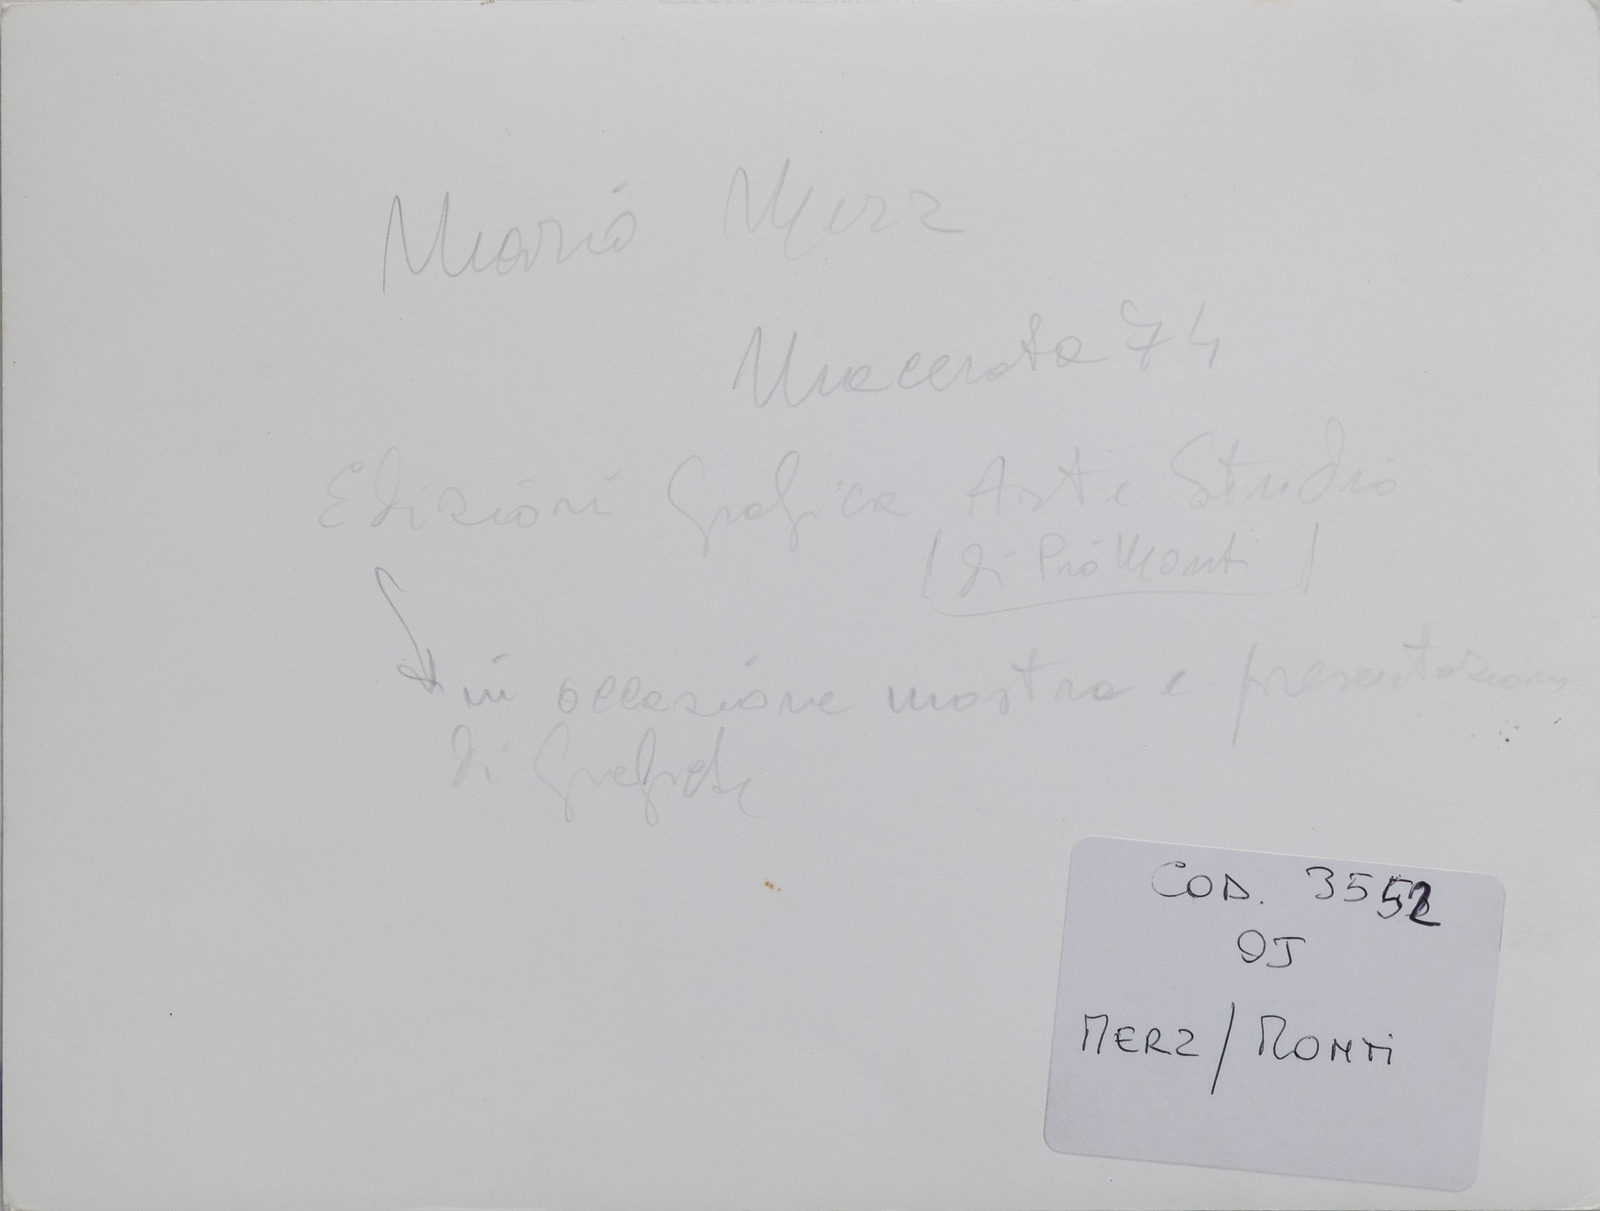 Mario Merz
Macerata 74
Edizioni Grafica Arte Studio
(di Pio Monti)
in occasione mostra e presentazione
di Grafiche
COD. 3552
OJ
MERZ/MONTI